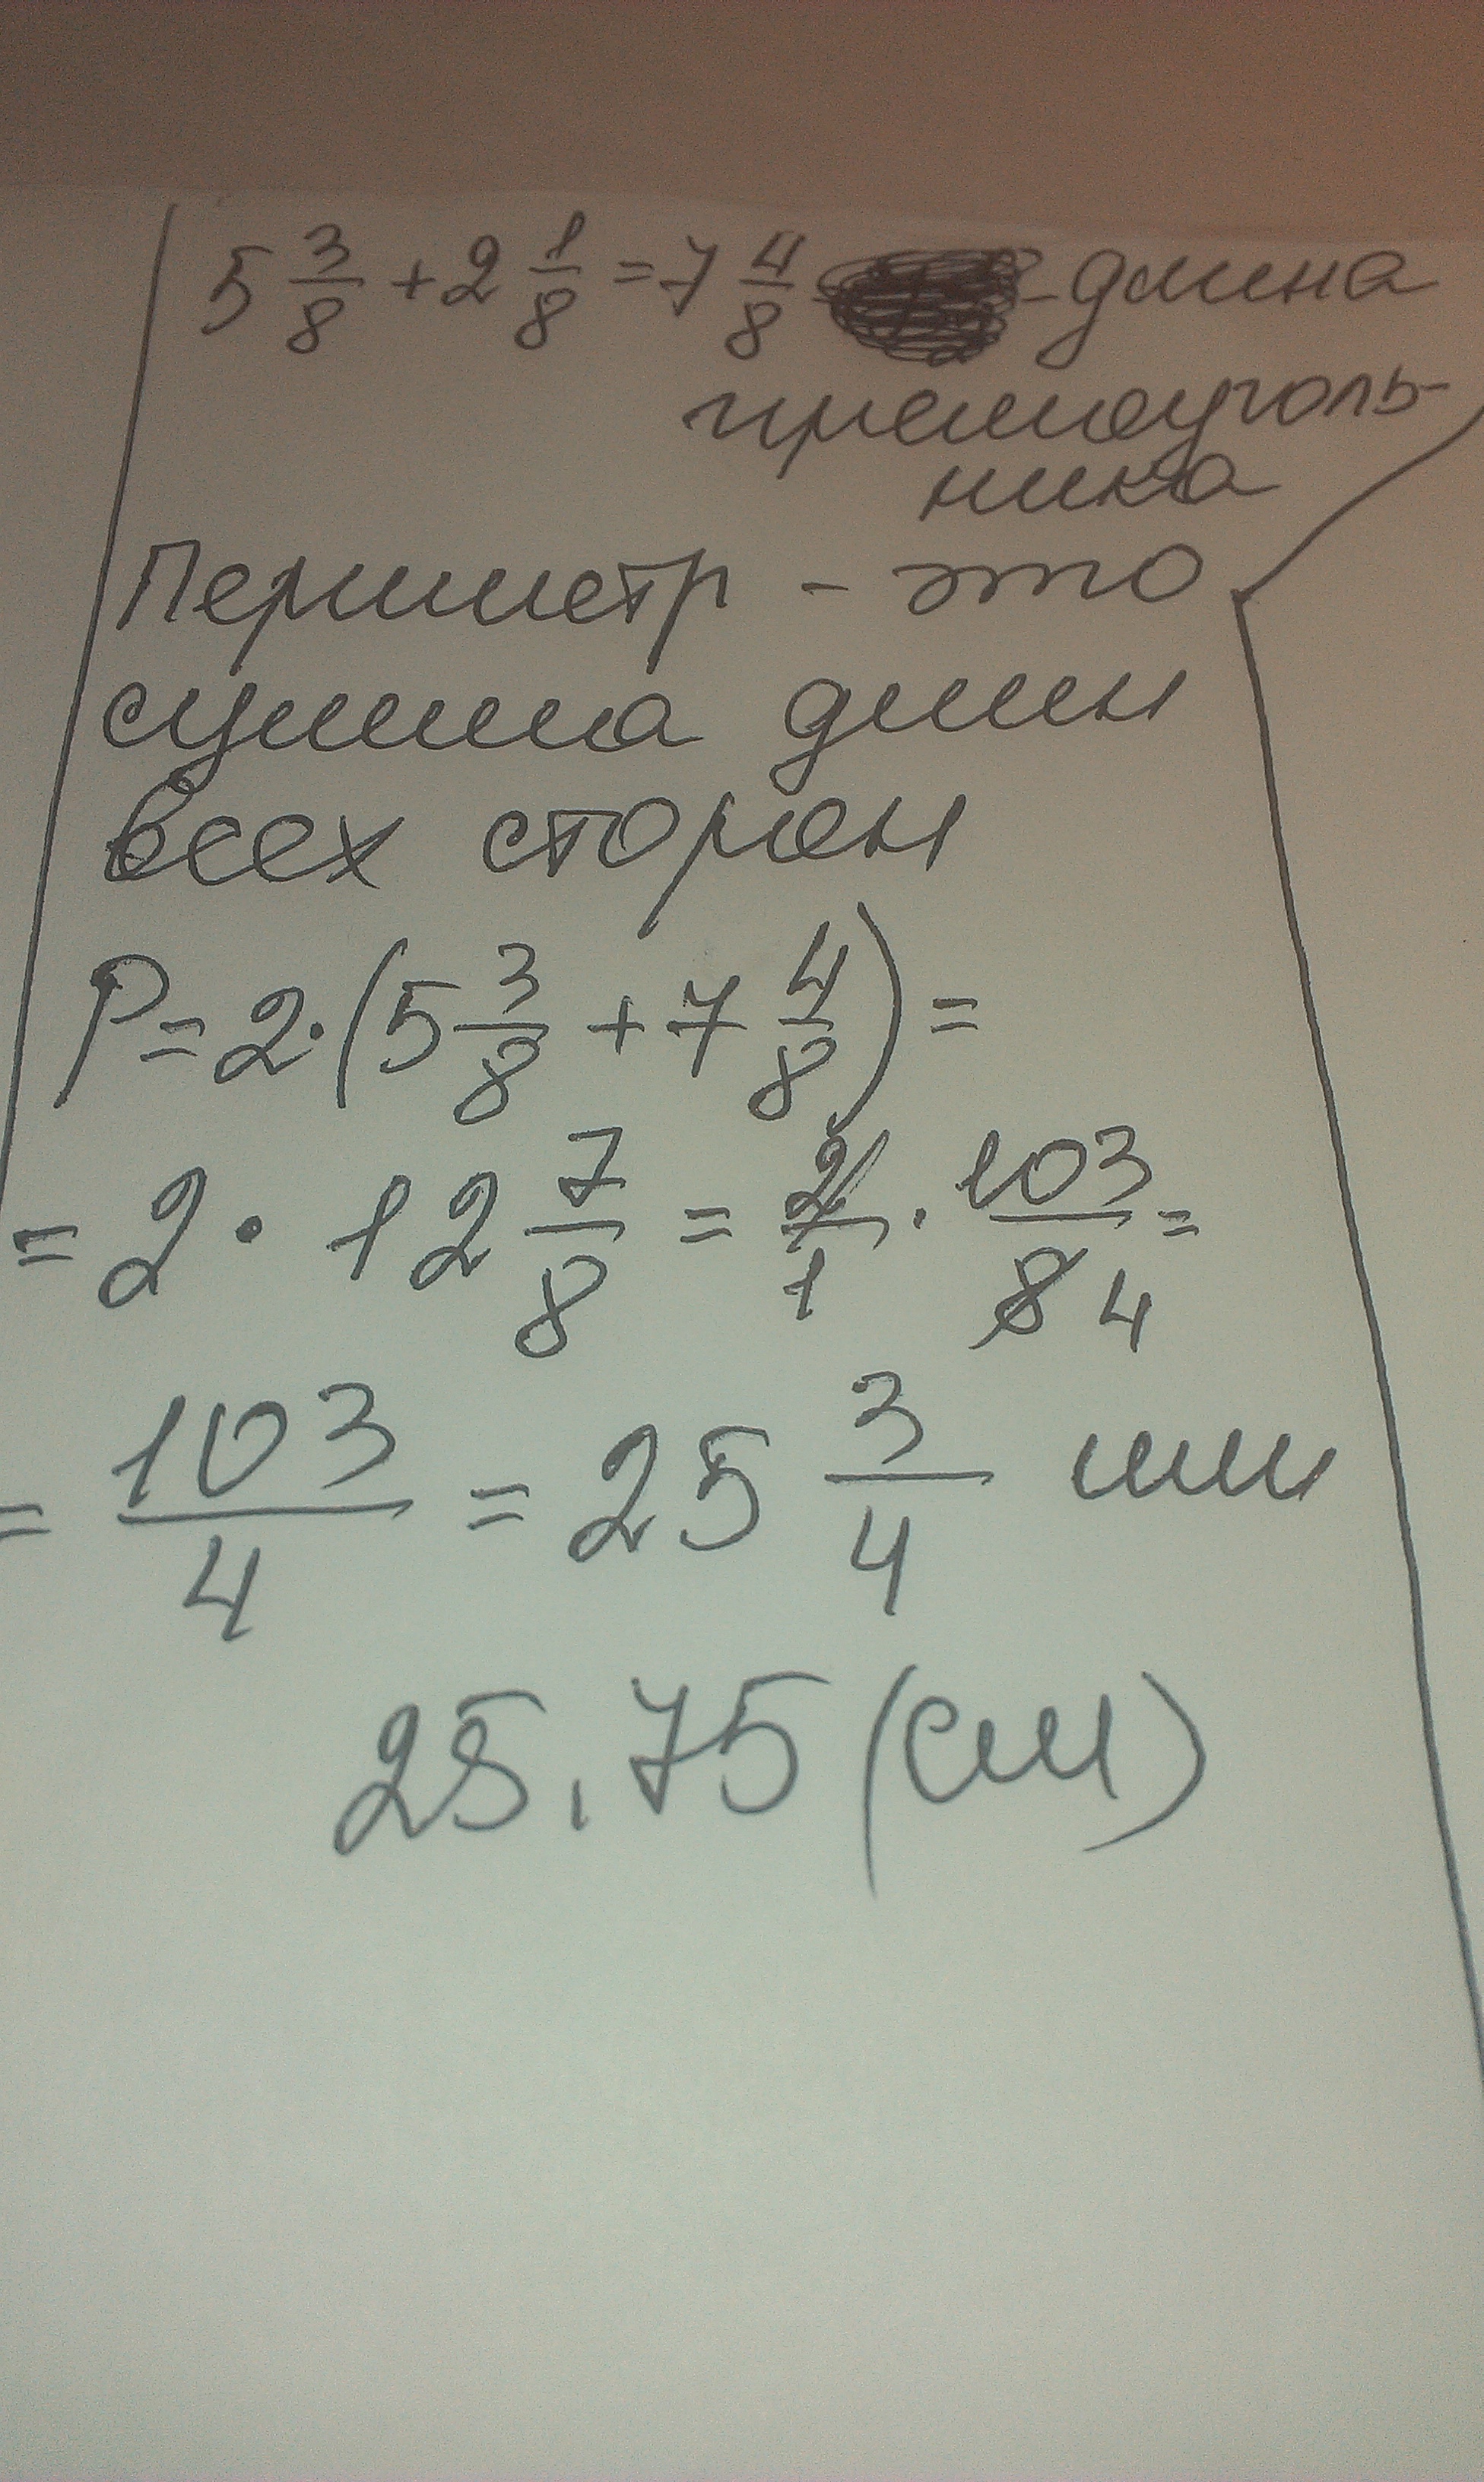 5 3/8 + 2 1/8 = 7 4/8 - длина
прямоуголь-
ника
Периметр - это
сумма длин
всех сторон
P = 2 · (5 3/8 + 7 4/8) =
= 2 · 12 7/8 = 2/1 · 103/8 4 =
= 103/4 = 25 3/4 или
25,75 (см)